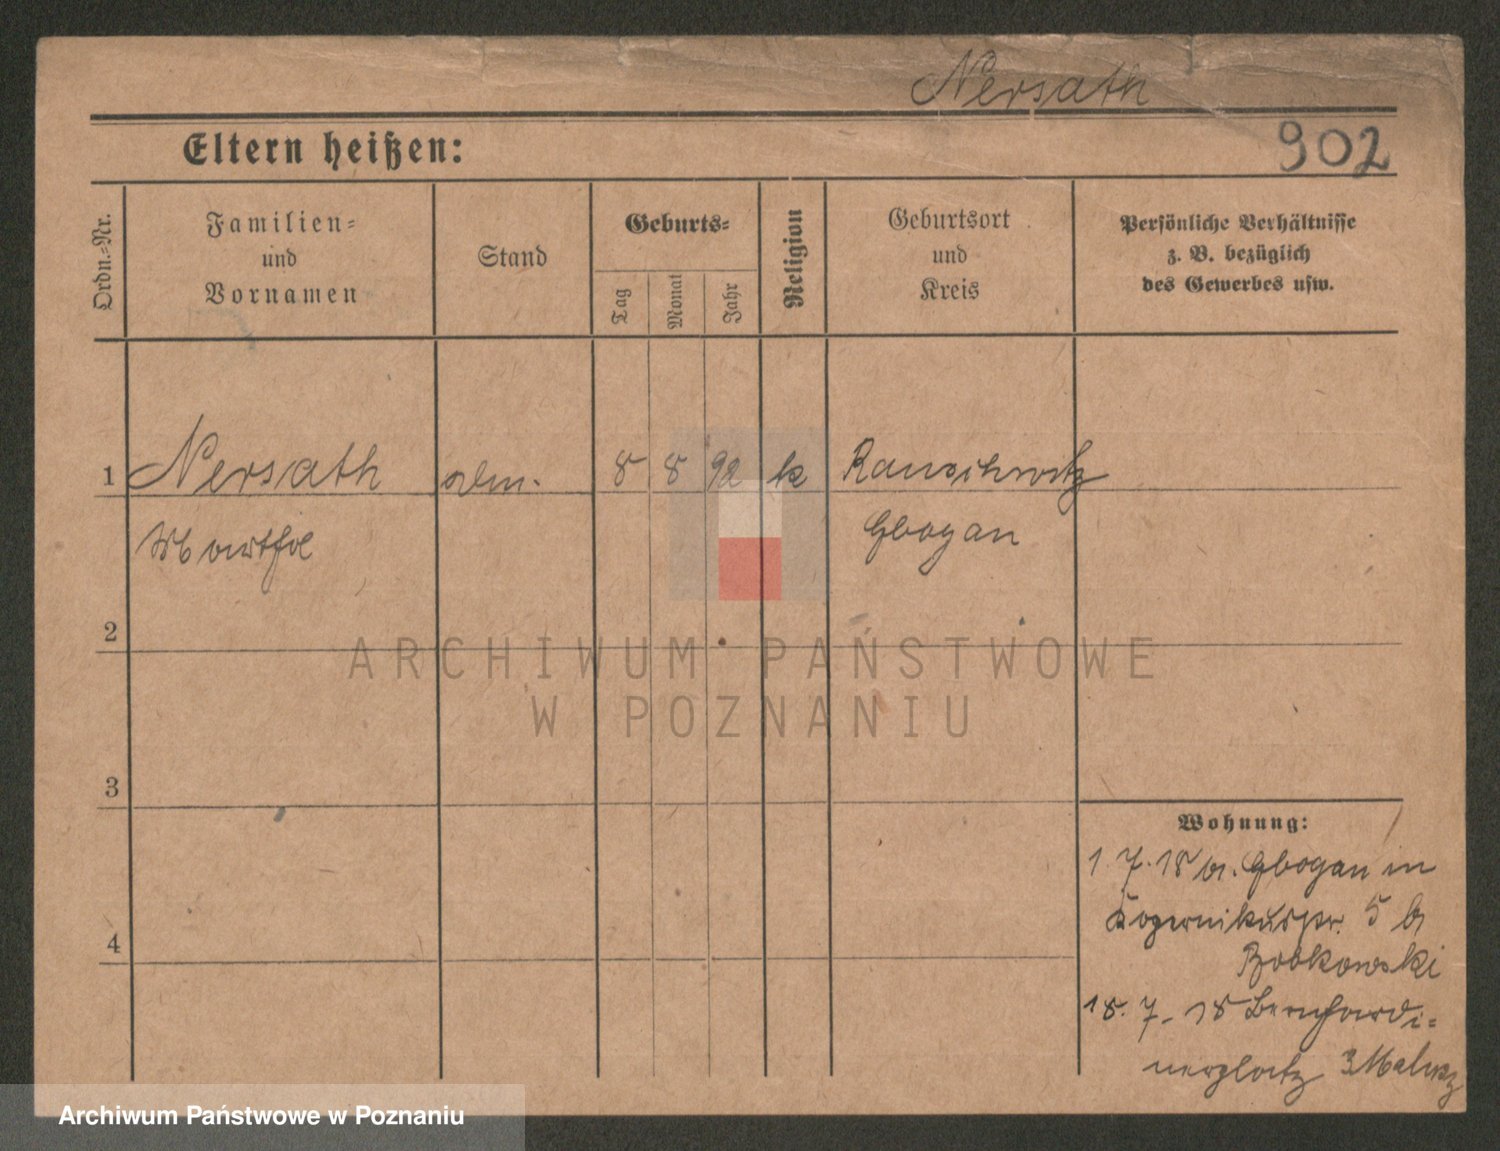 Nersath
902
Eltern heißen:
Ordn.-Nr.
Familien-
und
Vornamen
Stand
Geburts-
Tag
Monat
Jahr
Religion
Geburtsort
und
Kreis
Persönliche Verhältnisse
z. B. bezüglich
des Gewerbes usw.
1 Nersath 8 8 92 k Rauschwitz
Glogau
2
ARCHIWUM PAŃSTWOWE
W POZNANIU
3
Wohnung:
1 7. 18 v. Glogau in
Kopernikusstr. 5 b
Bobkowski
4
18. 7. 18 Bernhardi-
nerplatz 3
Archiwum Państwowe w Poznaniu